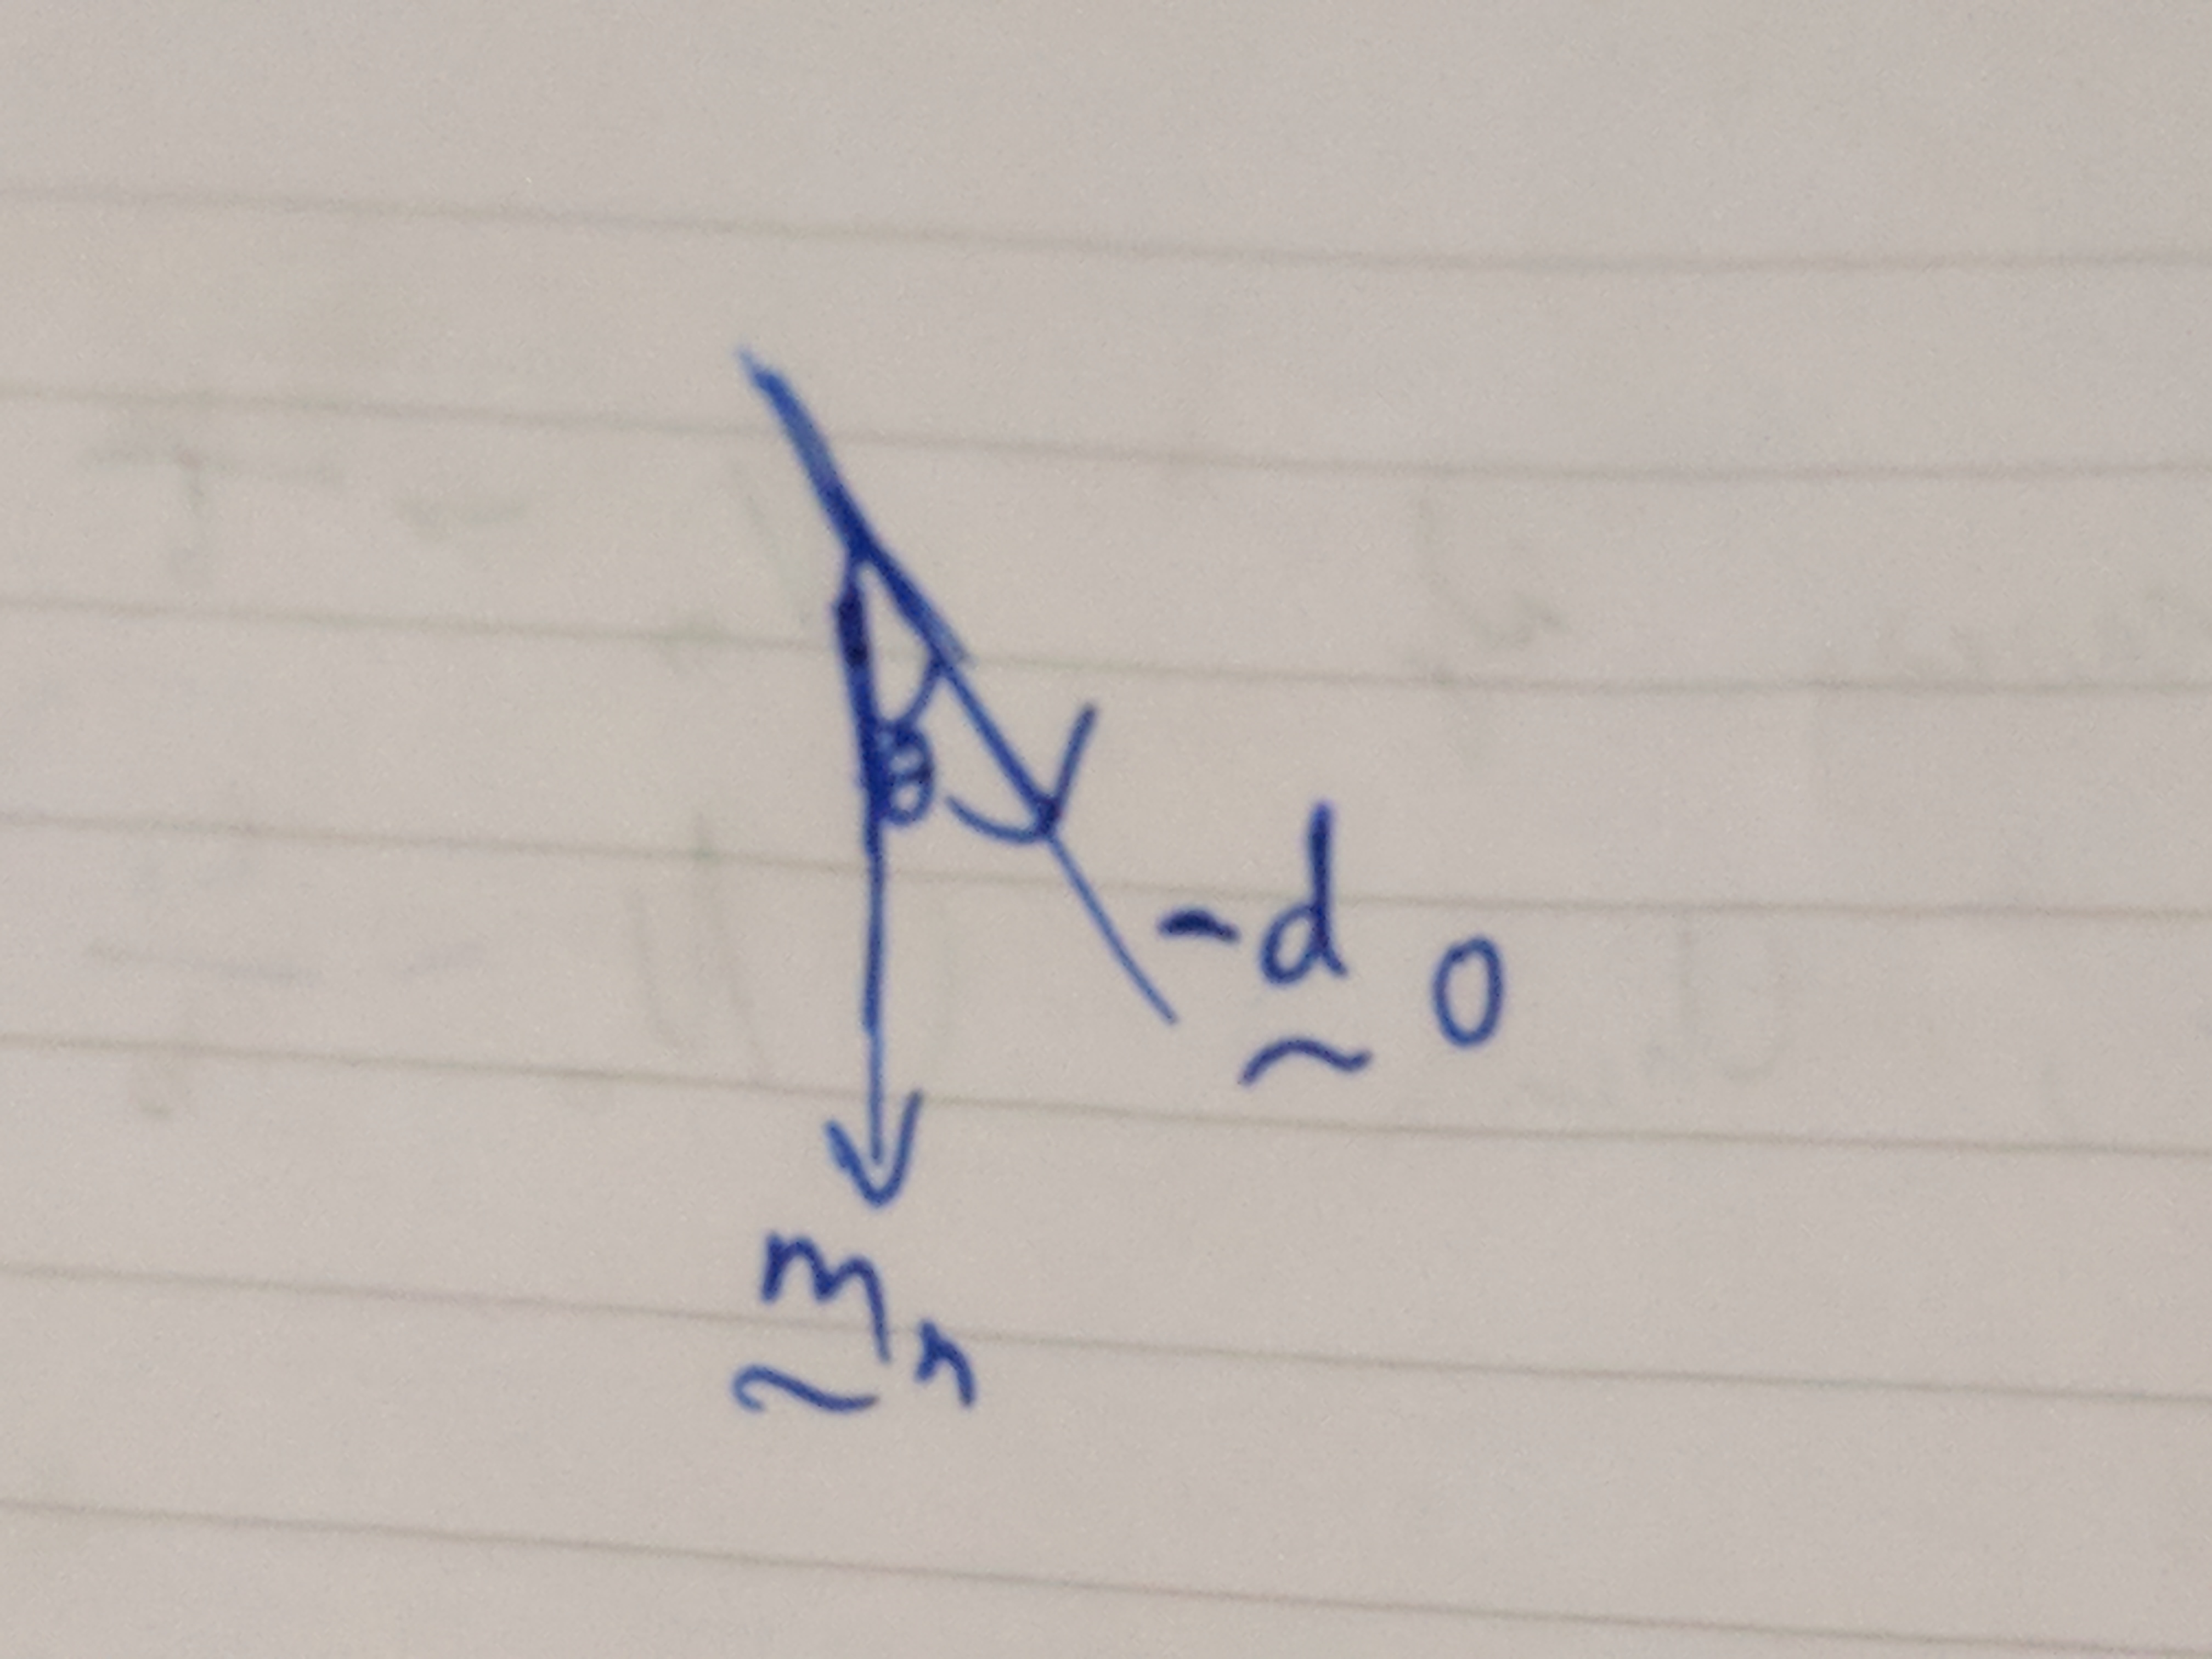 θ
-d 0
~
m n
~